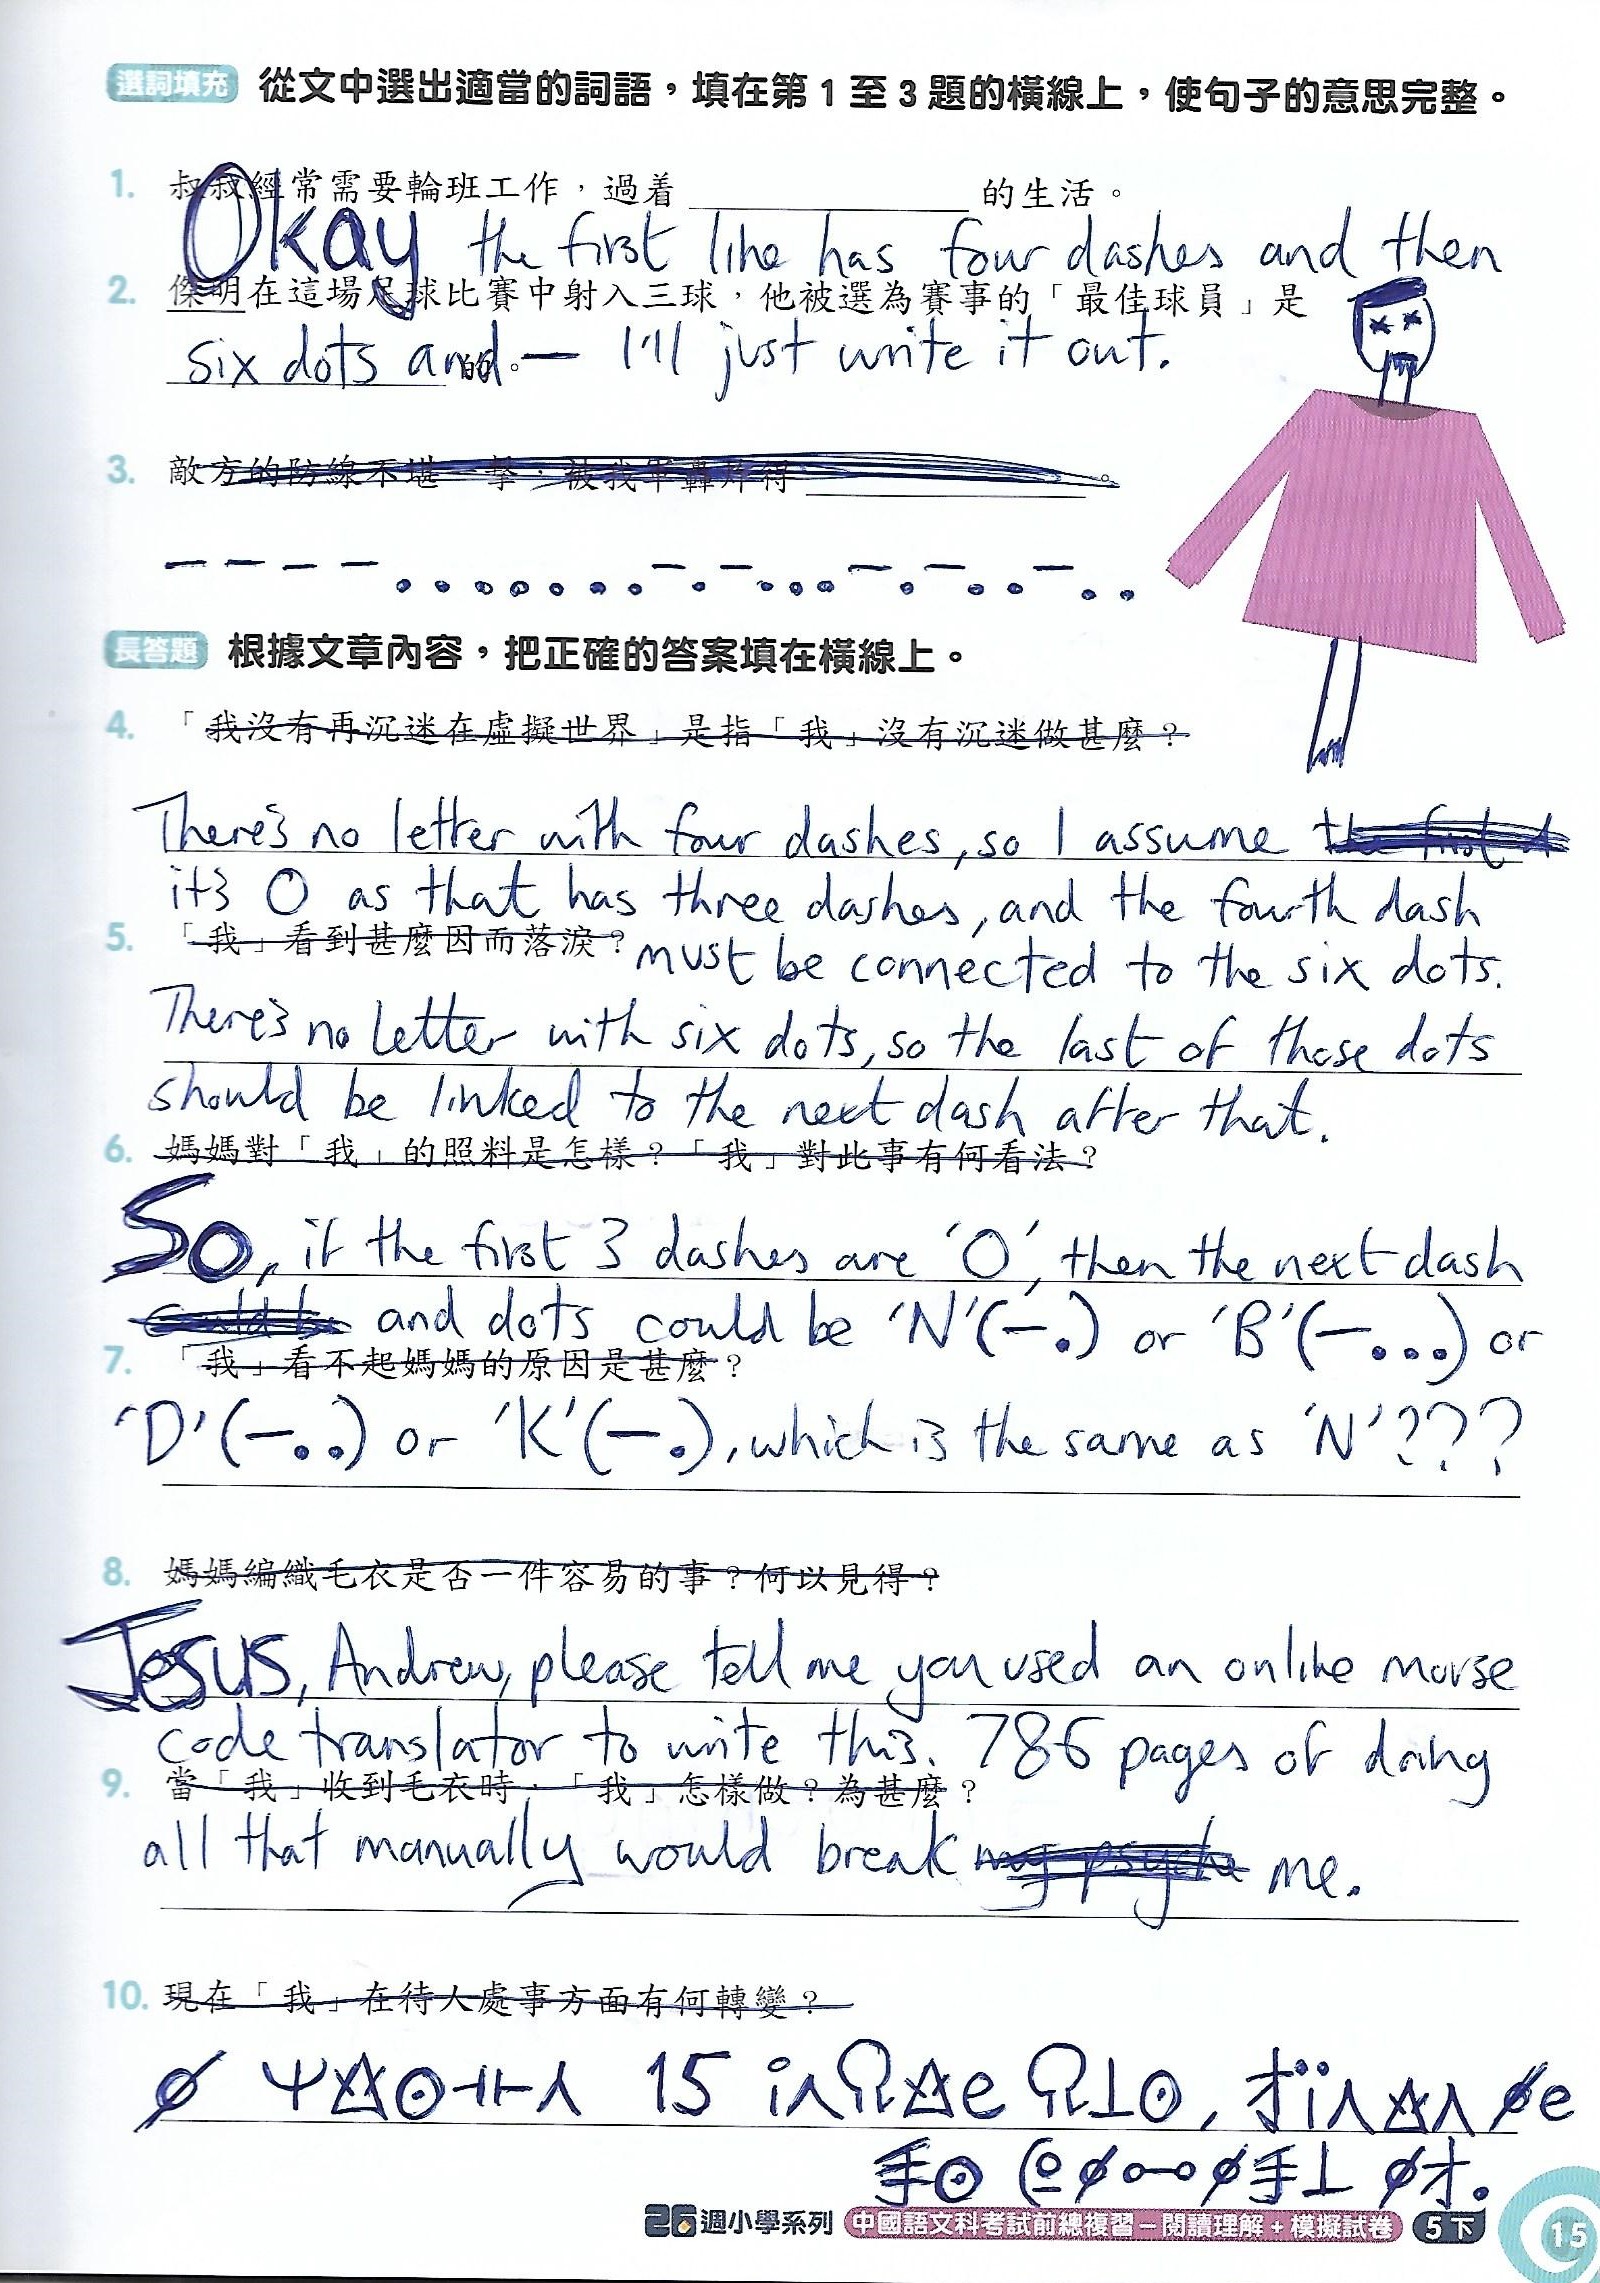 選詞填充 從文中選出適當的詞語，填在第 1 至 3 題的橫線上，使句子的意思完整。
1. 叔叔經常需要輪班工作，過着 ______ 的生活。
Okay the first line has four dashes and then
2. 傑明在這場足球比賽中射入三球，他被選為賽事的「最佳球員」是
______ 的。
six dots and — I'll just write it out.
3. 敵方的防線不堪一擊，被我軍轟炸得 ______ 。
— — — — . . . . . . . — . — . . . — . — . . — . .
長答題 根據文章內容，把正確的答案填在橫線上。
4. 「我沒有再沉迷在虛擬世界」是指「我」沒有沉迷做甚麼？
There's no letter with four dashes, so I assume the first d
it's O as that has three dashes, and the fourth dash
5. 「我」看到甚麼因而落淚？
must be connected to the six dots.
There's no letter with six dots, so the last of those dots
should be linked to the next dash after that.
6. 媽媽對「我」的照料是怎樣？「我」對此事有何看法？
So, if the first 3 dashes are 'O', then the next dash
could be and dots could be 'N' (—.) or 'B' (—...) or
7. 「我」看不起媽媽的原因是甚麼？
'D' (—..) or 'K' (—.), which is the same as 'N'???
8. 媽媽編織毛衣是否一件容易的事？何以見得？
Jesus, Andrew, please tell me you used an online morse
code translator to write this. 786 pages of doing
9. 當「我」收到毛衣時，「我」怎樣做？為甚麼？
all that manually would break my psyche me.
10. 現在「我」在待人處事方面有何轉變？
15
26週小學系列 中國語文科考試前總複習－閱讀理解＋模擬試卷 5下 15